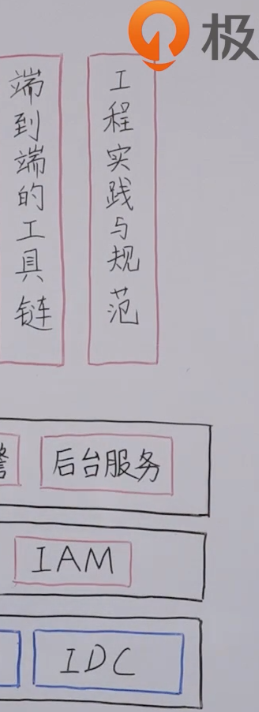 极
端到端的工具链
工程实践与规范
警
后台服务
IAM
IDC